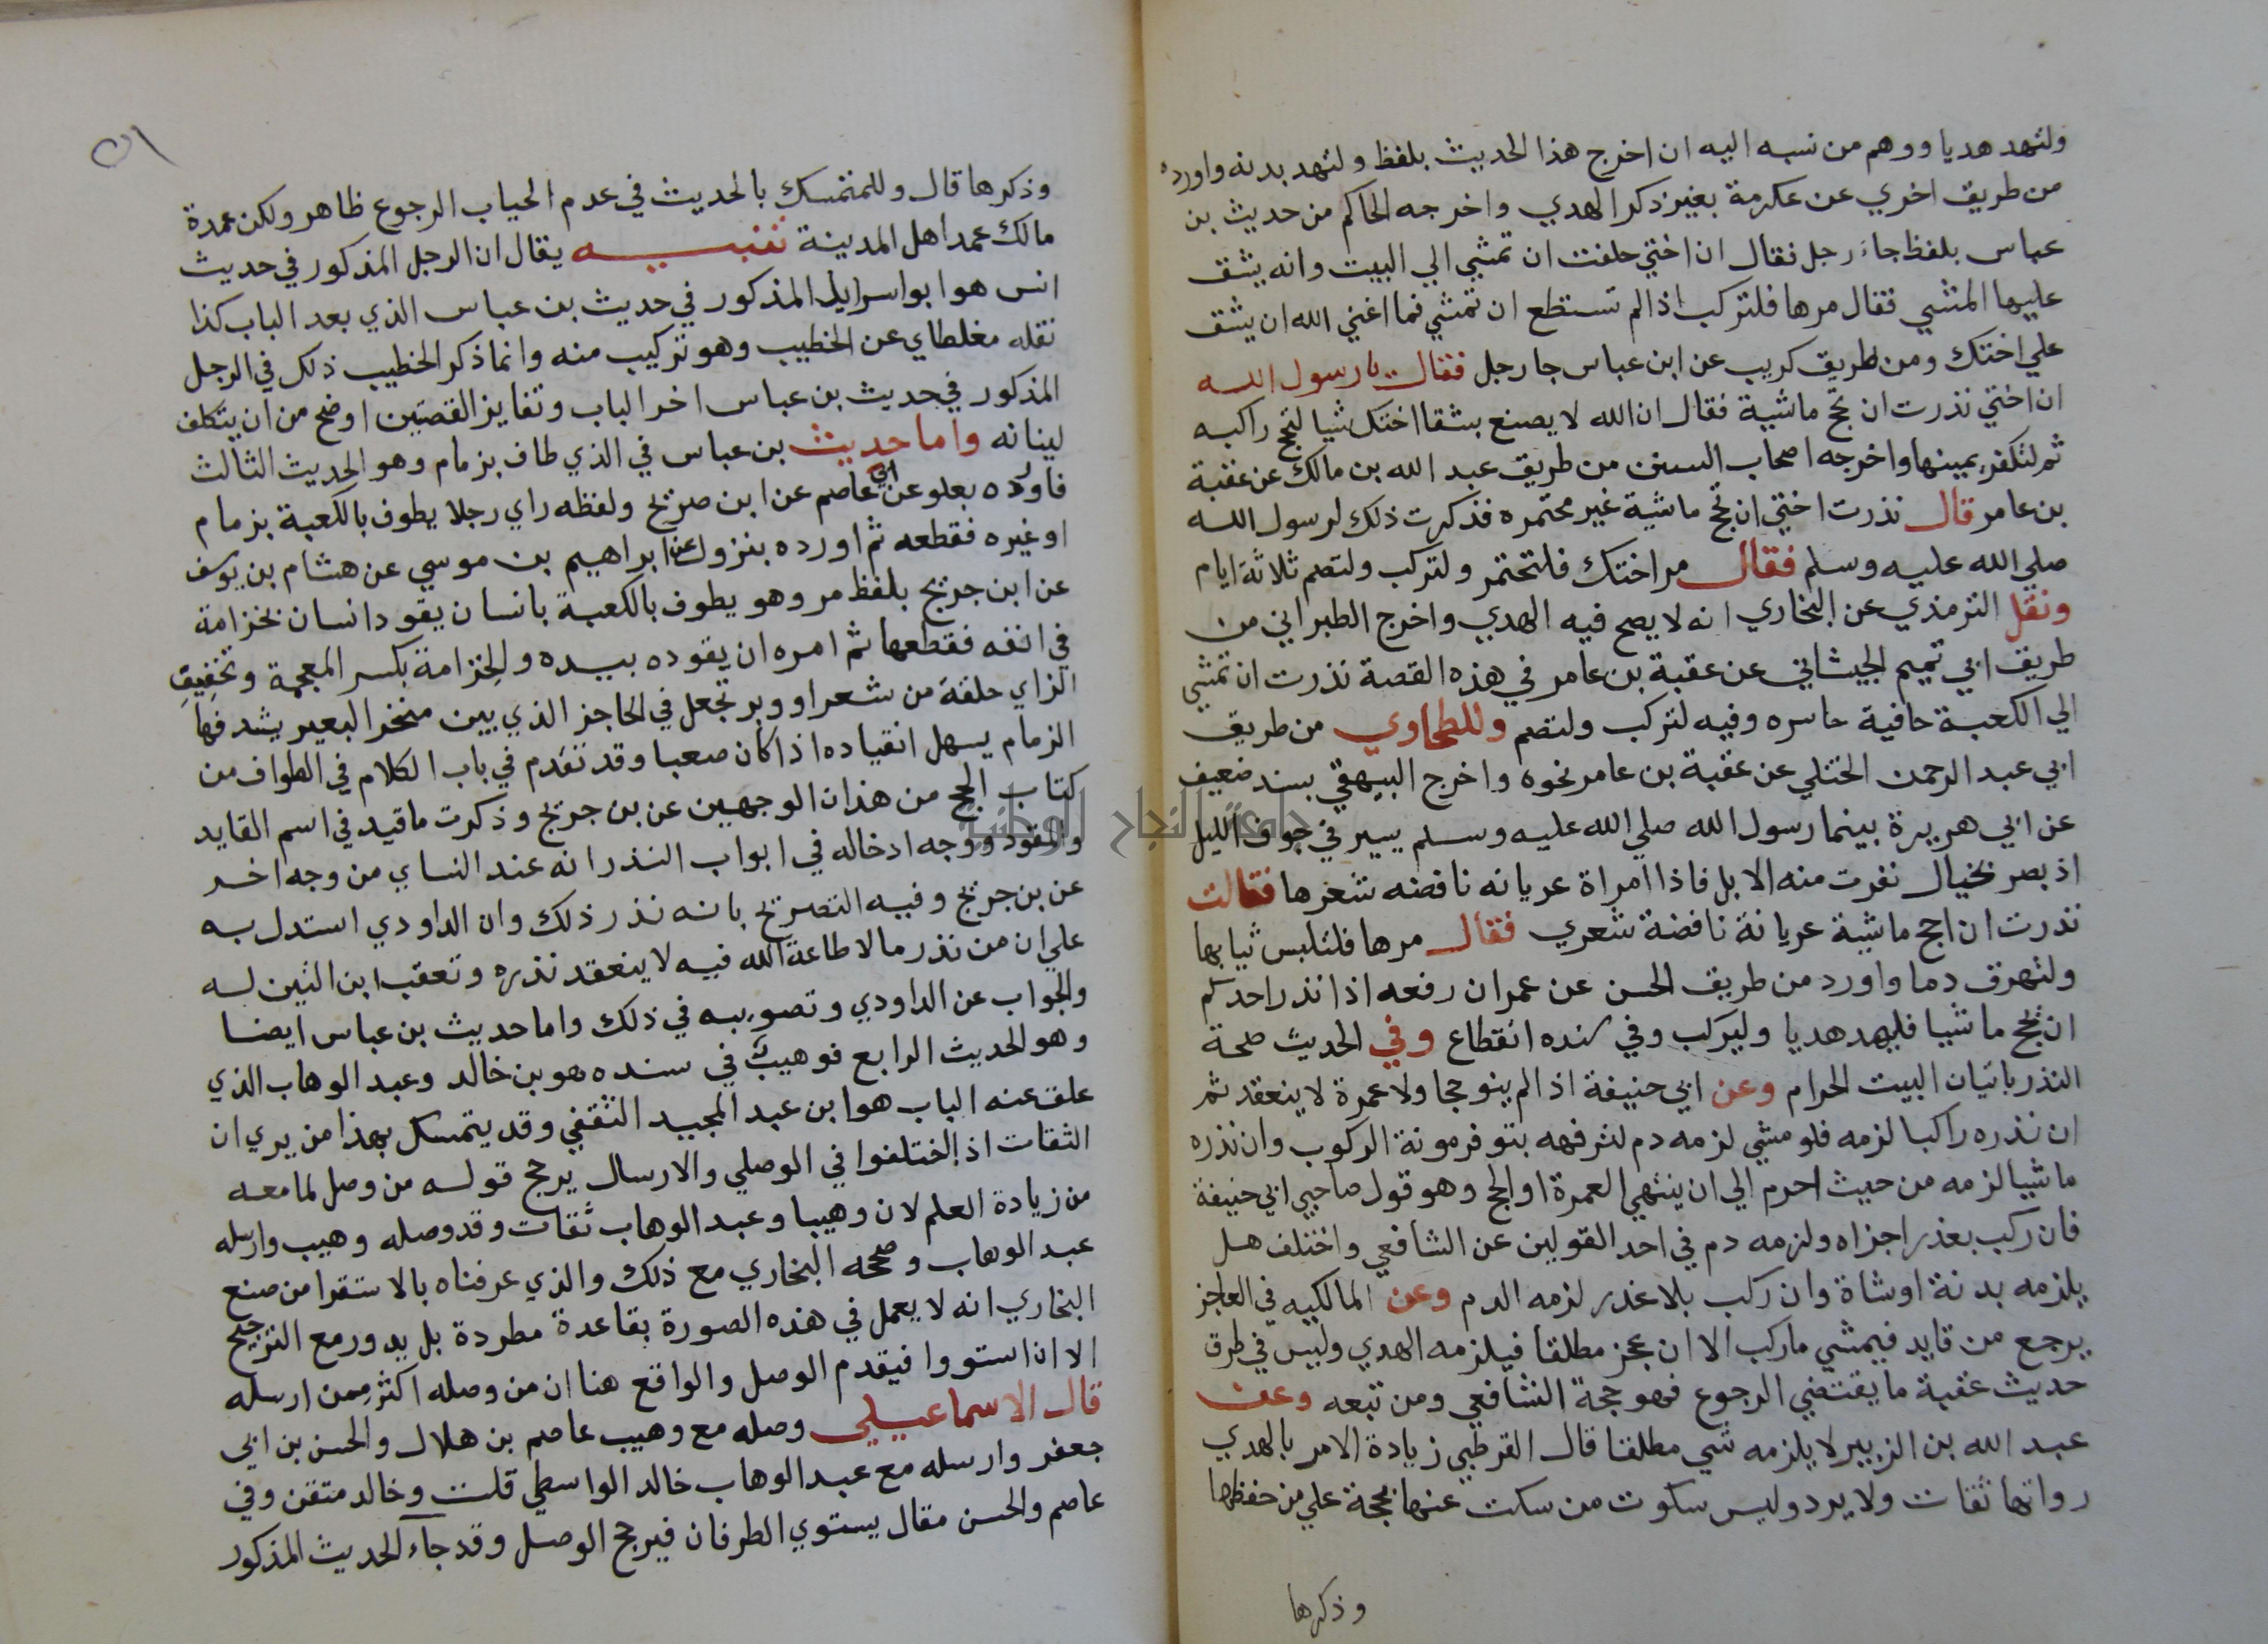 ولتهد هديا ووهم من نسبه اليه ان اخرج هذا الحديث بلفظ ولتهد بدنه واورده
من طريق اخري عن عكرمة بغير ذكر الهدي واخرجه الحاكم من حديث بن
عباس بلفظ جاء رجل فقال ان اختي حلفت ان تمشي الي البيت وانه يشق
عليها المشي فقال مرها فلتركب اذا لم تستطع ان تمشي فما اغني الله ان يشق
علي اختك ومن طريق كريب عن ابن عباس جا رجل فقال يا رسول الله
ان اختي نذرت ان تحج ماشية فقال ان الله لا يصنع بشقا اختك شيا لتحج راكبه
ثم لتكفر يمينها واخرجه اصحاب السنن من طريق عبد الله بن مالك عن عقبة
بن عامر قال نذرت اختي ان تحج ماشية غير مختمره فذكرت ذلك لرسول الله
صلي الله عليه وسلم فقال مر اختك فلتختمر ولتركب ولتصم ثلاثة ايام
ونقل الترمذي عن البخاري انه لا يصح فيه الهدي واخرج الطبراني من
طريق ابي تميم الجيشاني عن عقبة بن عامر في هذه القصة نذرت ان تمشي
الي الكعبة حافية حاسره وفيه لتركب ولتصم وللطحاوي من طريق
ابي عبد الرحمن الحتلي عن عقبة بن عامر نحوه واخرج البيهقي بسند ضعيف
عن ابي هريرة بينما رسول الله صلي الله عليه وسلم يسير في جوف الليل
اذ بصر بخيال نفرت منه الابل فاذا امراة عريانه نافضه شعرها فقالت
نذرت ان احج ماشية عريانة نافضة شعري فقال مرها فلتلبس ثيابها
ولتهرق دما واورد من طريق الحسن عن عمران رفعه اذا نذر احدكم
ان يحج ماشيا فليهد هديا وليركب وفي سنده انقطاع وفي الحديث صحة
النذر باتيان البيت الحرام وعن ابي حنيفة اذا لم ينو حجا ولا عمرة لا ينعقد ثم
ان نذره راكبا لزمه فلو مشي لزمه دم لترفهه بتوفر مونة الركوب وان نذره
ماشيا لزمه من حيث احرم الي ان ينتهي العمرة او الحج وهو قول صاحبي ابي حنيفة
فان ركب بعذر اجزاه ولزمه دم في احد القولين عن الشافعي واختلف هل
يلزمه بدنة او شاة وان ركب بلا عذر لزمه الدم وعن المالكيه في العاجز
يرجع من قابد فيمشي ما ركب الا ان عجز مطلقا فيلزمه الهدي وليس في طرق
حديث عقبة ما يقتضي الرجوع فهو حجة الشافعي ومن تبعه وعن
عبد الله بن الزبير لا يلزمه شي مطلقا قال القرطبي زيادة الامر بالهدي
رواتها ثقات ولا يرد وليس سكوت من سكت عنها بحجة علي من حفظها
وذكرها
٥١
وذكرها قال وللمتمسك بالحديث في عدم الحياب الرجوع ظاهر ولكن عمدة
مالك عمد اهل المدينة تنبيه يقال ان الرجل المذكور في حديث
انس هو ابو اسرايل المذكور في حديث بن عباس الذي بعد الباب كذا
نقله مغلطاي عن الخطيب وهو تركيب منه وانما ذكر الخطيب ذلك في الرجل
المذكور في حديث بن عباس اخر الباب وتغاير القصتين اوضح من ان يتكلف
لبيانه واما حديث بن عباس في الذي طاف بزمام وهو الحديث الثالث
فاورده بعلو عن ابي عاصم عن ابن صريح ولفظه راي رجلا يطوف بالكعبة بزمام
او غيره فقطعه ثم اورده بنزول عن ابراهيم بن موسي عن هشام بن يوسف
عن ابن جريج بلفظ مر وهو يطوف بالكعبة بانسان يقود انسان بخزامة
في انفه فقطعها ثم امره ان يقوده بيده والخزامة بكسر المعجمة وتخفيف
الزاي حلقة من شعر او وبر تجعل في الحاجز الذي بين منخر البعير يشد فيها
الزمام يسهل انقياده اذا كان صعبا وقد تقدم في باب الكلام في الطواف من
كتاب الحج من هذان الوجهين عن بن جريج وذكرت ما قيد في اسم القايد
والمقود ووجه ادخاله في ابواب النذر انه عند النساي من وجه اخر
عن بن جريج وفيه التصريح بانه نذر ذلك وان الداودي استدل به
علي ان من نذر ما لا طاعة الله فيه لا ينعقد نذره وتعقب ابن التين له
والجواب عن الداودي وتصويبه في ذلك واما حديث بن عباس ايضا
وهو الحديث الرابع فوهيب في سنده هو بن خالد وعبد الوهاب الذي
علق عنه الباب هو ابن عبد المجيد الثقفي وقد يتمسك بهذا من يري ان
الثقات اذا اختلفوا في الوصلي والارسال يرجح قوله من وصل لما معه
من زيادة العلم لان وهيبا وعبد الوهاب ثقات وقد وصله وهيب وارسله
عبد الوهاب وصححه البخاري مع ذلك والذي عرفناه بالاستقرا من صنع
البخاري انه لا يعمل في هذه الصورة بقاعدة مطردة بل يدور مع الترجيح
الا ان استووا فيقدم الوصل والواقع هنا ان من وصله اكثر ممن ارسله
قال الاسماعيلي وصله مع وهيب عاصم بن هلال والحسن بن ابي
جعفر وارسله مع عبد الوهاب خالد الواسطي قلت وخالد متقن وفي
عاصم والحسن مقال يستوي الطرفان فيرجح الوصل وقد جاء الحديث المذكور
جامعة النجاح الوطنية